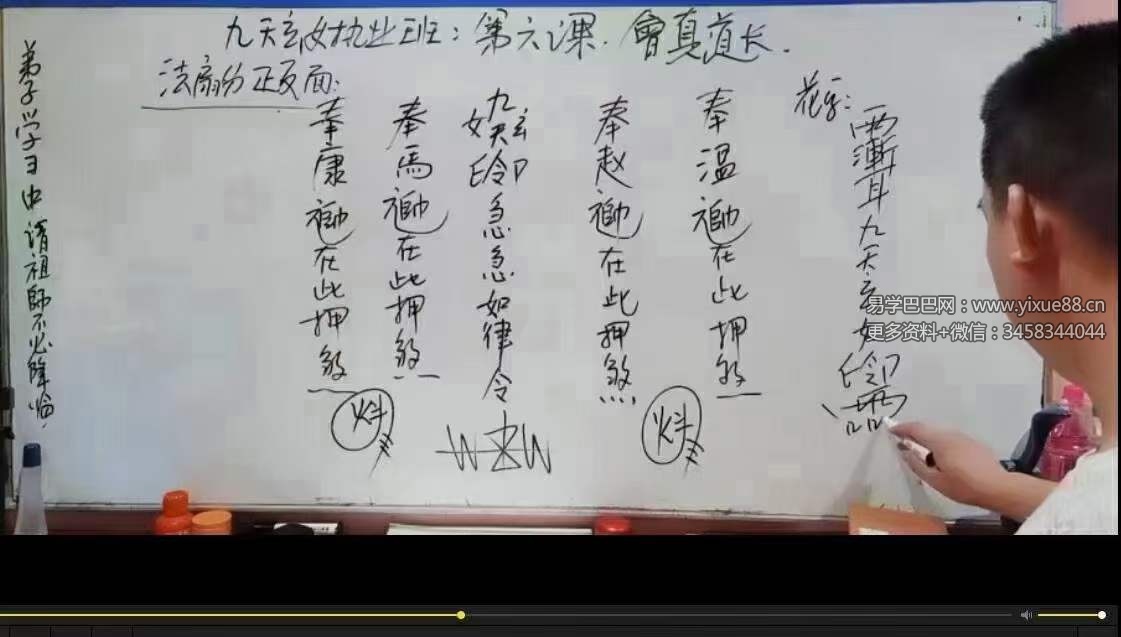 九天玄女执业班：第六课．曾真道长．
法扇分正反面：
弟子学习中请祖師不必降臨
奉康元帥在此押煞
奉馬元帥在此押煞
九天玄女印急急如律令
奉赵元帥在此押煞
奉温元帥在此押煞
花字：
九天玄女
易学巴巴网：www.yixue88.cn
更多资料+微信：3458344044